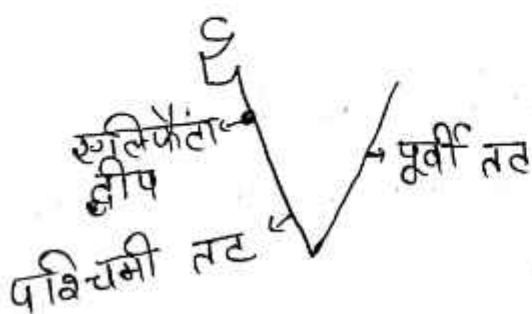 एलिफैंटा
द्वीप
पूर्वी तट
पश्चिमी तट